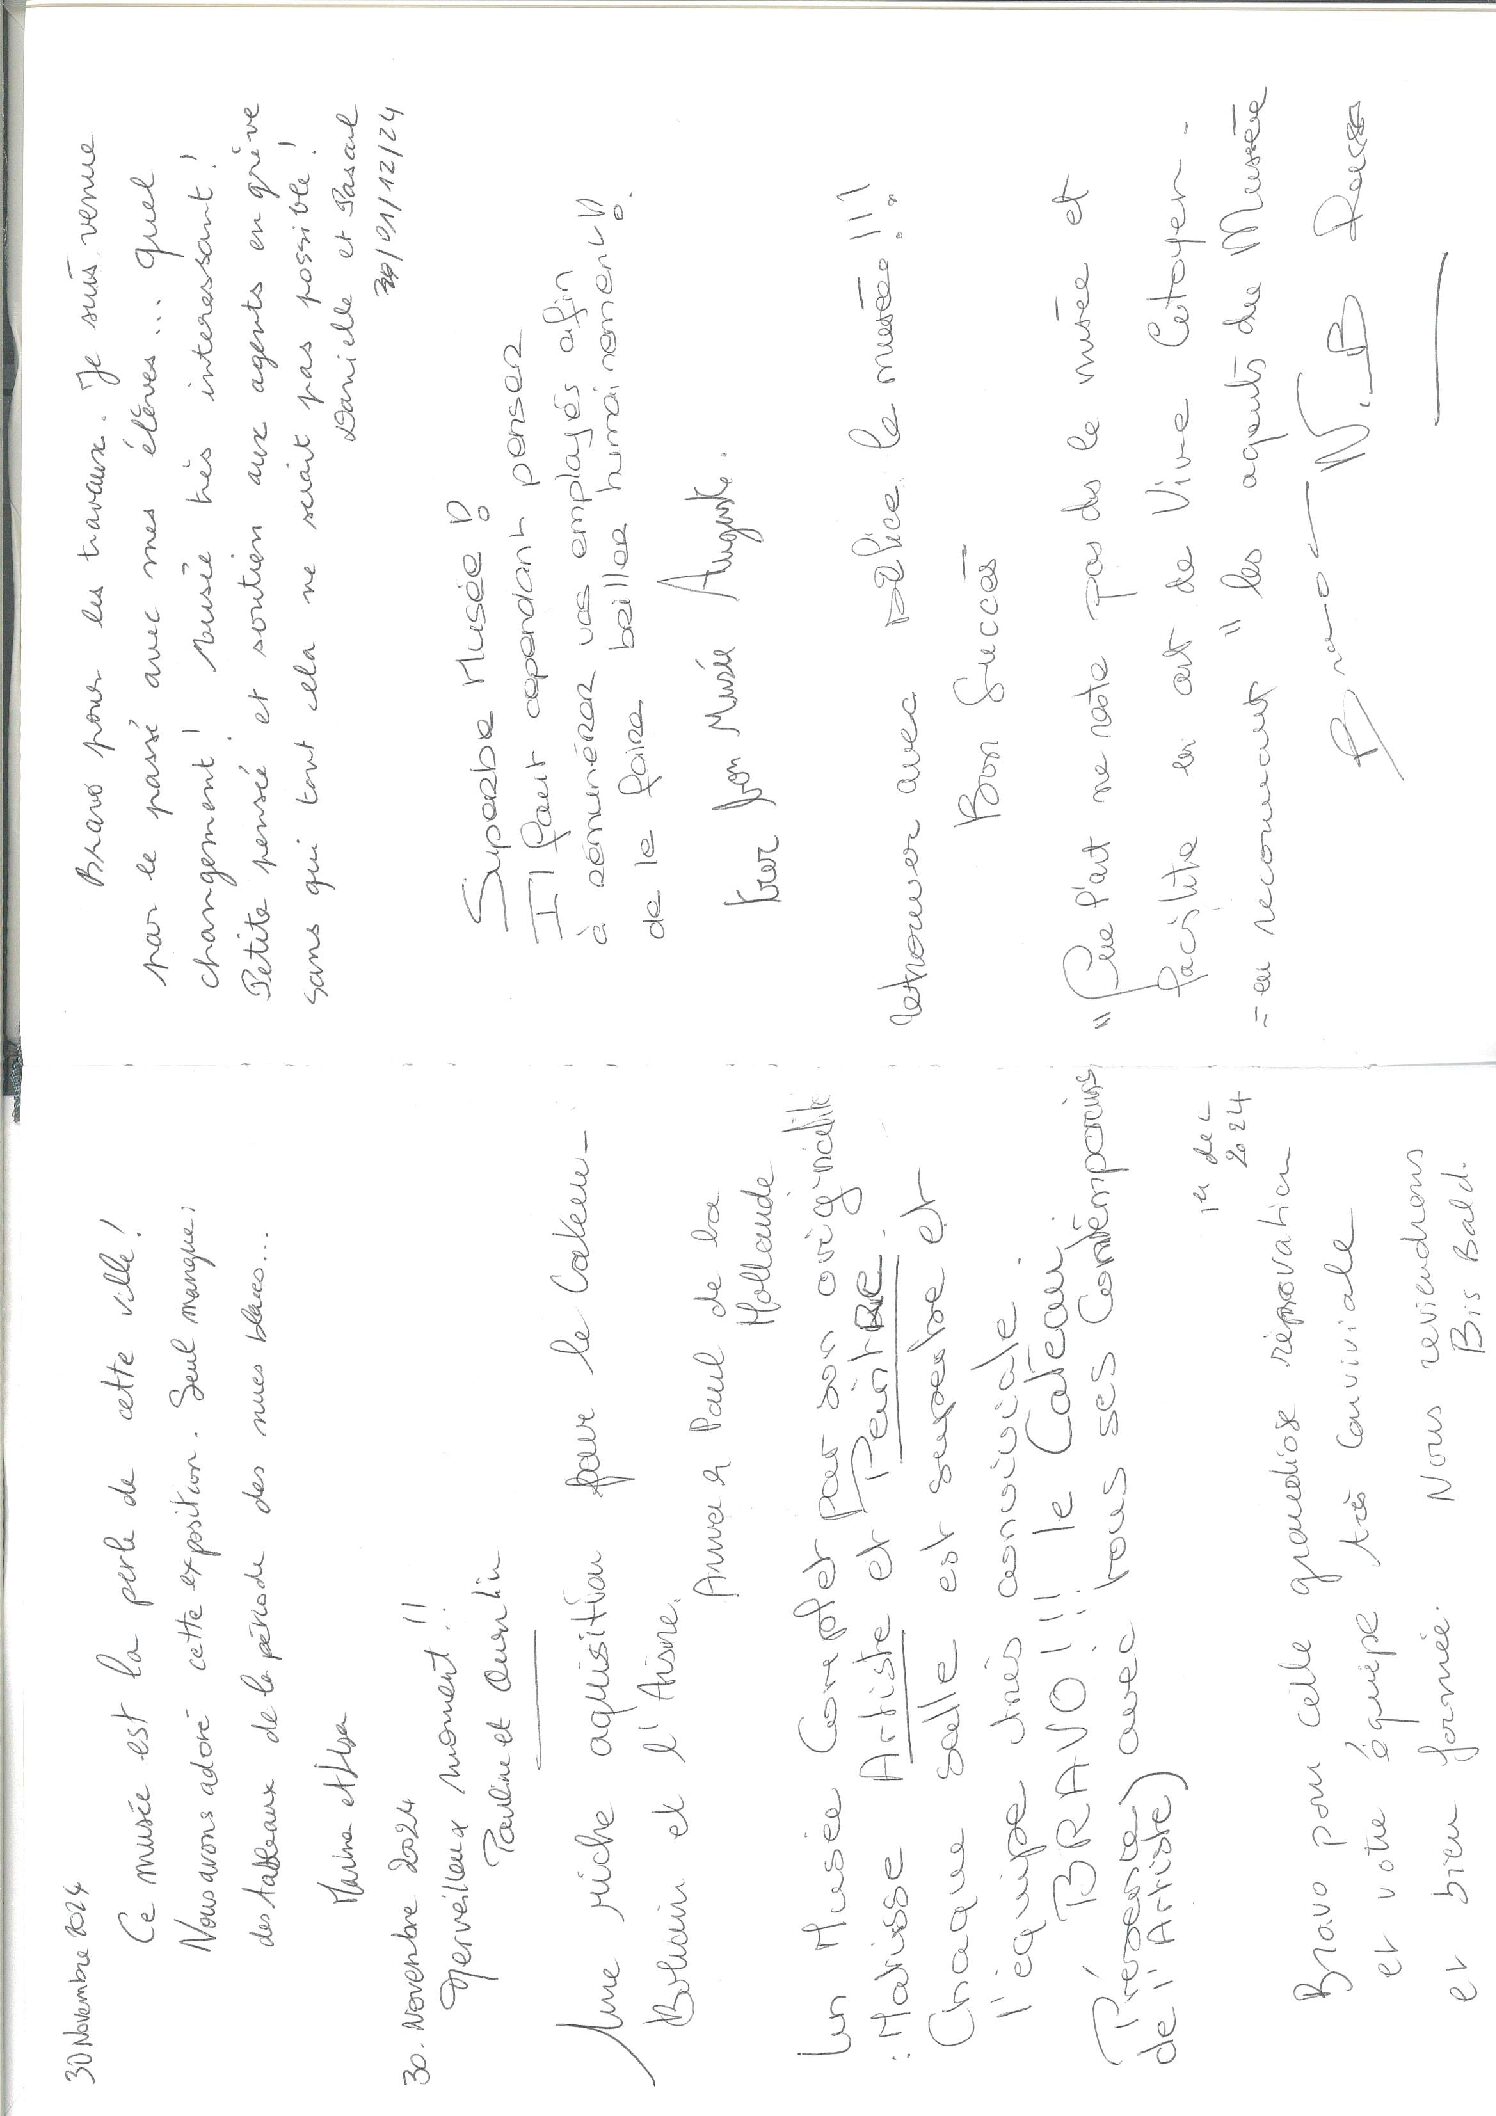 30 Novembre 2024
Ce musée est la perle de cette ville!
Nous avons adoré cette exposition. Seul manque:
des tableaux de la période des nues bleues...
Marina et Elsa
30. Novembre 2024
Merveilleux moment!!
Pauline et Quentin
Une riche aquisition pour le Cateau_
Bohain et l'Aisne.
Anna & Paul de la
Hollande
Un Musée Complet par son originalité
: Matisse Artiste et Peintre.
Chaque salle est superbe et
l'équipe très conviviale.
BRAVO!!! le Cateau.
(Présence avec tous ses contemporains
de l'Artiste)
1er dec
2024
Bravo pour celle grandiose rénovation
et votre équipe très conviviale
et bien formée. Nous reviendrons
Bis Bald.
Bravo pour les travaux. Je suis venue
par le passé avec mes élèves... quel
changement! Musée très interessant!
Petite pensée et soutien aux agents en grève
sans qui tout cela ne serait pas possible!
Danielle et Pascal
01/12/24
Superbe Musée!
Il faut cependant penser
à rémunérer vos employés afin
de le faire briller humainement!
Très bon Musée Auguste.
retrouver avec délice le musée!!!
Bon Succès
"Que l'art ne reste pas ds le musée et
facilite un art de Vivre Citoyen -
= en reconnaissant " les agents du Musée
Bravo N.B